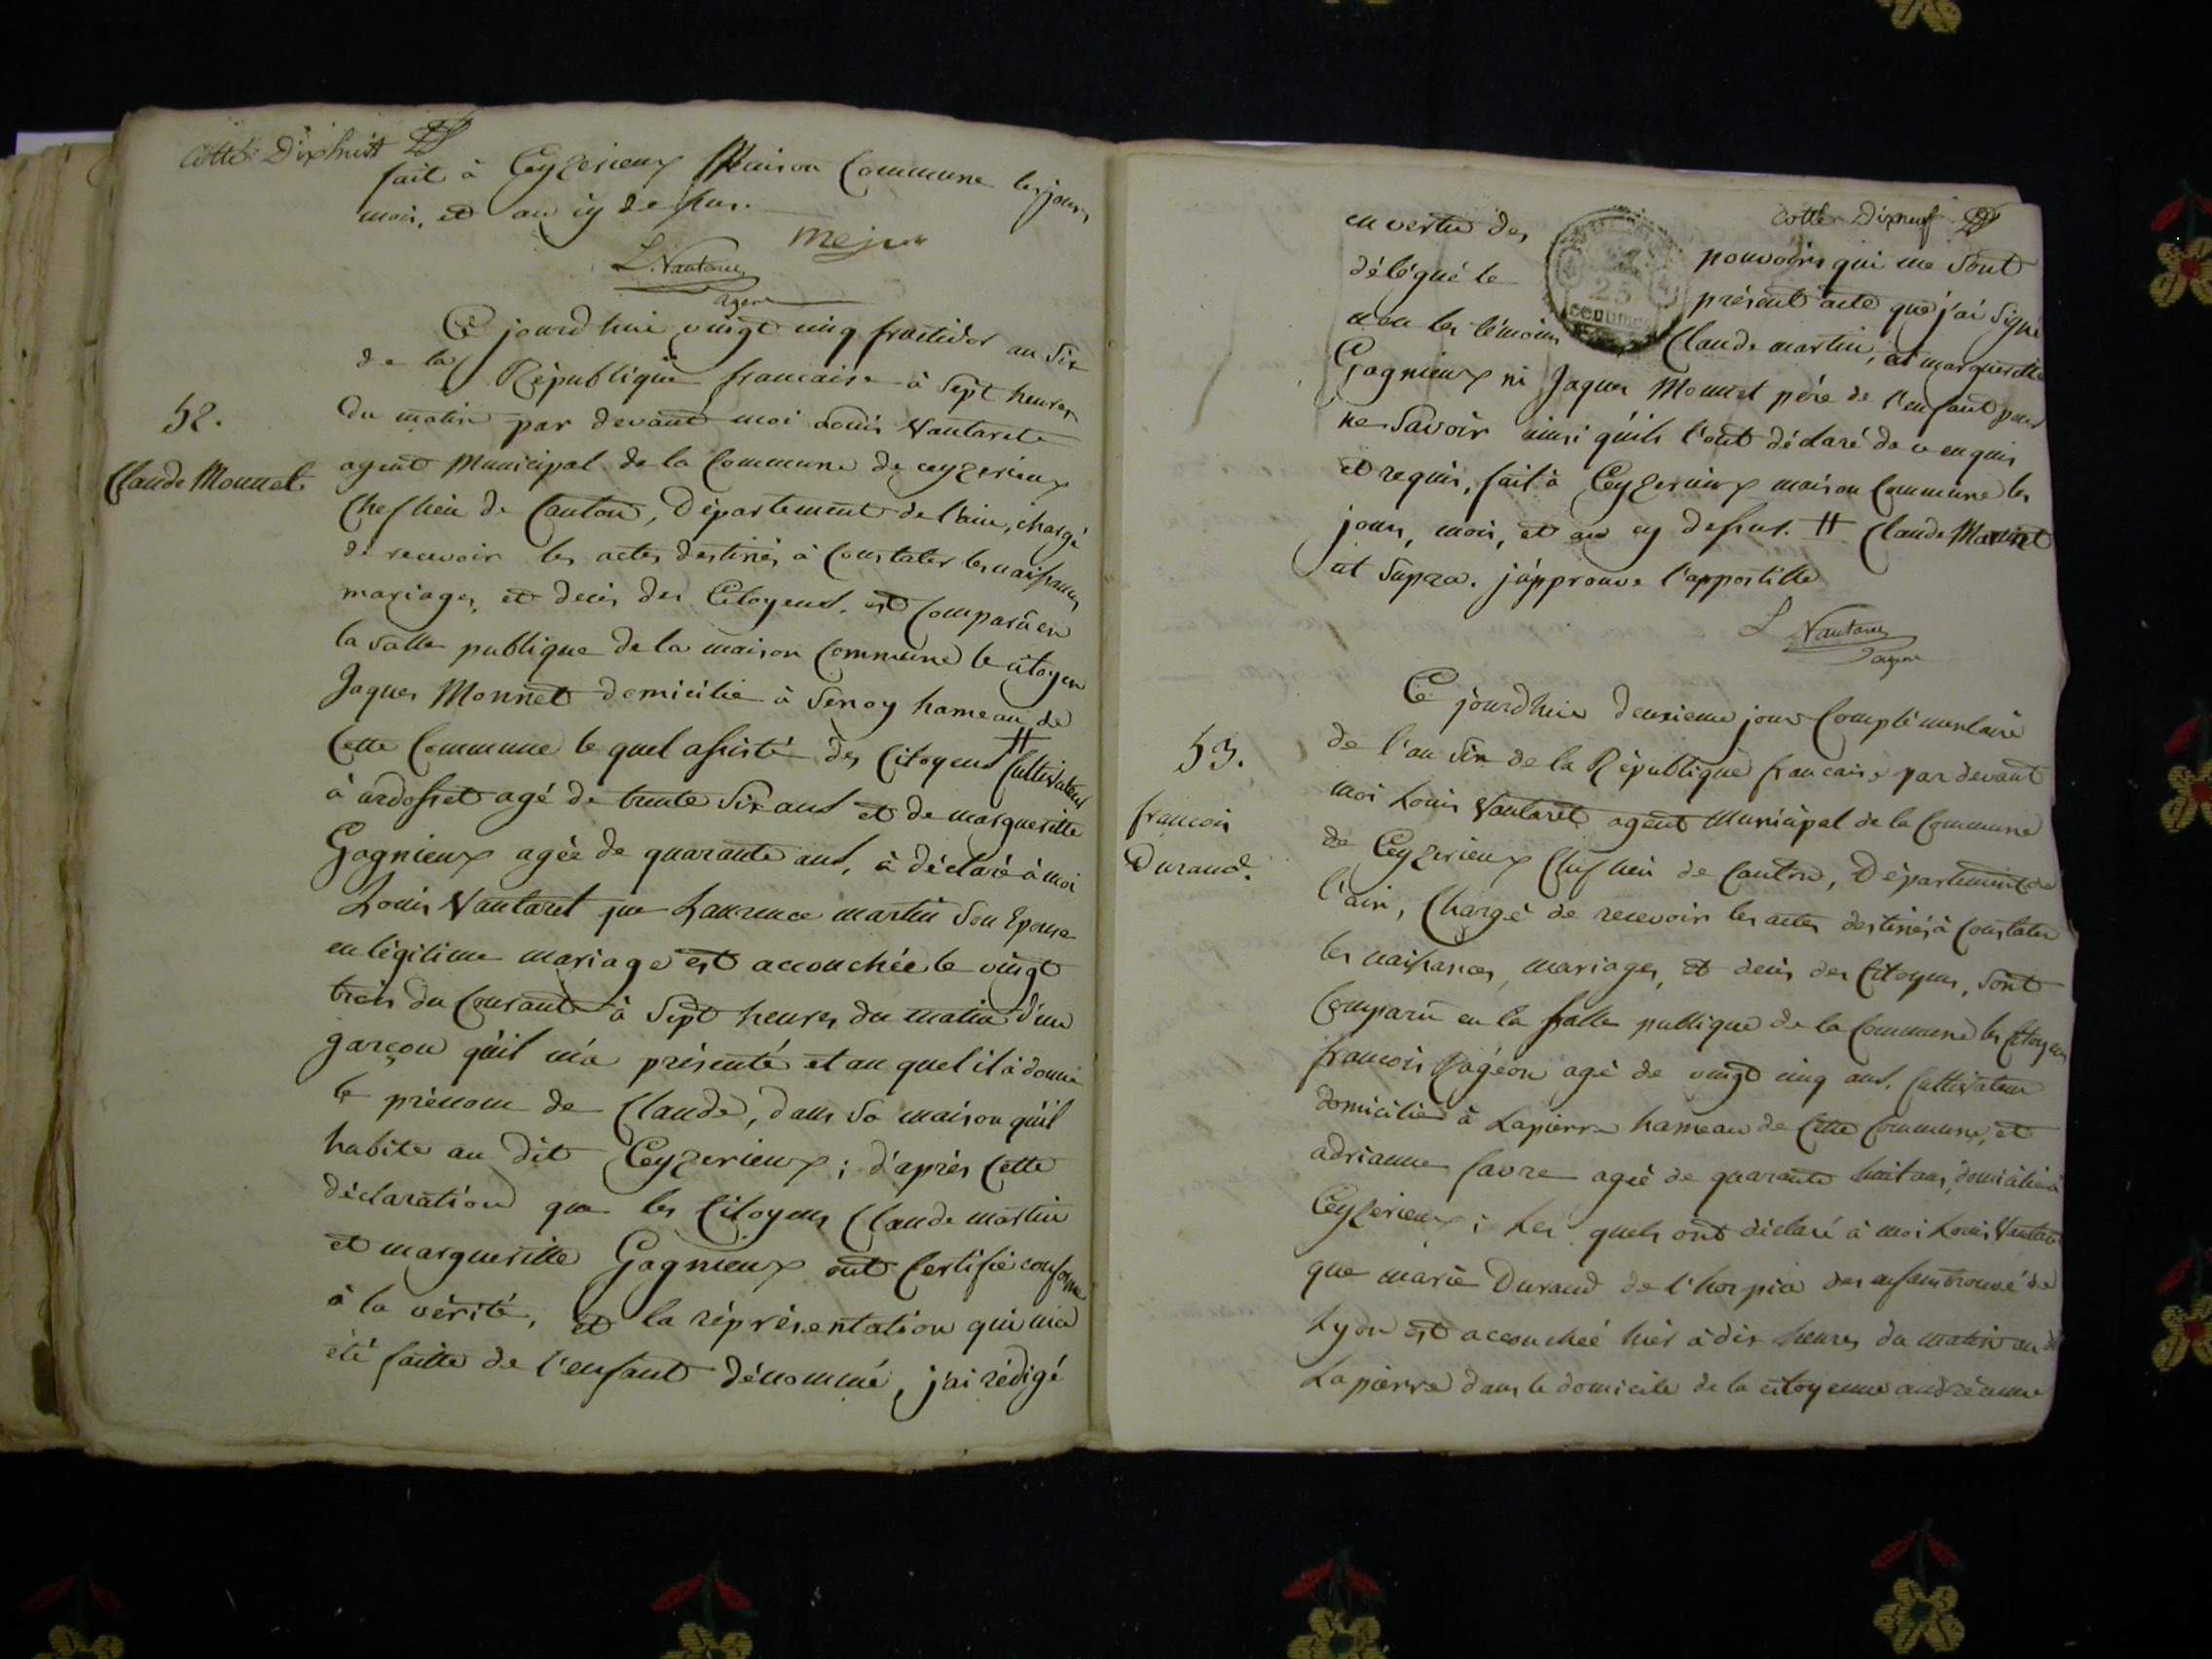 Cotté Dixhuitt
fait à Ceyzerieux Maison Commune les jours
mois, et an cy dessus.
L. Vantaret
agent
52.
Claude Monnet
Ce jourd'hui vingt cinq fructidor an Six
de la République francaise à Sept heures
du matin par devant moi Louis Vantaret
agent Municipal de la Commune de ceyzerieux
Chef lieu de Canton, Département de l'ain, chargé
de recevoir les actes destinés à Constater les naissances
mariages, et decès des Citoyens. est Comparû en
la Salle publique de la maison Commune le citoyen
Jaques Monnet domicilié à Senoy hameau de
Cette Commune le quel assisté des Citoyens # Cultivateur
à ardosset agé de trente Six ans et de margueritte
Gognieux agée de quarante ans, à déclaré à moi
Louis Vantaret que Laurence martin Son Epouse
en légitime mariage est accouchée le vingt
trois du Courant à Sept heures du matin d'un
garçon qu'il m'a présenté et au quel il à donné
le prénom de Claude, dans Sa maison qu'il
habite au dit Ceyzerieux ; d'après Cette
déclaration que les Citoyens Claude martin
et margueritte Gognieux ont Certifié conforme
à la vérité, et la réprésentation qui m'a
été faitte de l'enfant dénommé, j'ai rédigé
Cotté Dixneuf
en vertu des pouvoirs qui me Sont
25
centimes
délégué le présent acte que j'ai Signé
non les témoins Claude martin, et margueritte
Gognieux ni Jaques Monnet père de l'enfant pour
ne Savoir ainsi qu'ils l'ont déclaré de ce enquis
et requis, fait à Ceyzerieux maison Commune les
jours, mois, et an cy dessus. # Claude Martin
ut Supra. j'approuve l'appostille
L Vantaret
agent
53.
francois
Durand.
Ce jourd'hui deuxieme jour Complémentaire
de l'an Six de la République francaise par devant
moi Louis Vantaret agent Municipal de la Commune
de Ceyzerieux Chef lieu de Canton, Département de
l'ain, Chargé de recevoir les actes destinés à Constater
les naissances, mariages, et decès des Citoyens, Sont
Comparû en la Salle publique de la Commune les Citoyens
francois Pagéon agé de vingt cinq ans, Cultivateur
domicilié à Lapierre hameau de Cette Commune, et
adrianne favre agée de quarante huit ans, domiciliée à
Ceyzerieux ; Les quels ont déclaré à moi Louis Vantaret
que marie Durand de l'hospice des enfans trouvé de
Lyon est accouchée hier à dix heures du matin au dt
Lapierre dans le domicile de la citoyenne andréanne